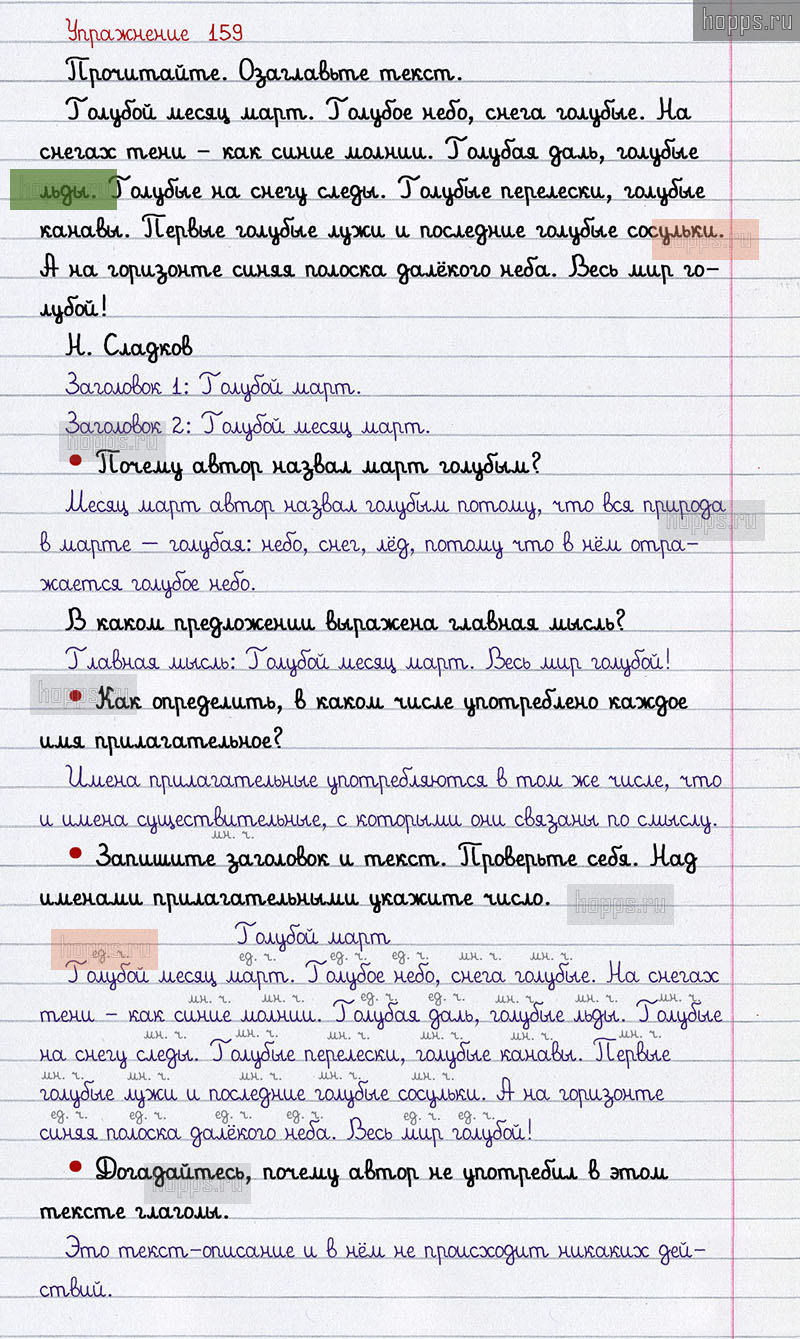 hopps.ru
Упражнение 159
Прочитайте. Озаглавьте текст.
Голубой месяц март. Голубое небо, снега голубые. На
снегах тени – как синие молнии. Голубая даль, голубые
льды. Голубые на снегу следы. Голубые перелески, голубые
канавы. Первые голубые лужи и последние голубые сосульки.
А на горизонте синяя полоска далёкого неба. Весь мир го-
лубой!
Н. Сладков
Заголовок 1: Голубой март.
Заголовок 2: Голубой месяц март.
hopps.ru
• Почему автор назвал март голубым?
Месяц март автор назвал голубым потому, что вся природа
hopps.ru
в марте – голубая: небо, снег, лёд, потому что в нём отра-
жается голубое небо.
В каком предложении выражена главная мысль?
Главная мысль: Голубой месяц март. Весь мир голубой!
hopps.ru
• Как определить, в каком числе употреблено каждое
имя прилагательное?
Имена прилагательные употребляются в том же числе, что
и имена существительные, с которыми они связаны по смыслу.
мн. ч.
• Запишите заголовок и текст. Проверьте себя. Над
именами прилагательными укажите число.
hopps.ru
Голубой март
hopps.ru
ед. ч. ед. ч. ед. ч. мн. ч. мн. ч.
Голубой месяц март. Голубое небо, снега голубые. На снегах
мн. ч. мн. ч. ед. ч. ед. ч. мн. ч. мн. ч. мн. ч.
тени – как синие молнии. Голубая даль, голубые льды. Голубые
мн. ч. мн. ч. мн. ч. мн. ч. мн. ч. мн. ч.
на снегу следы. Голубые перелески, голубые канавы. Первые
мн. ч. мн. ч. мн. ч. мн. ч. мн. ч.
голубые лужи и последние голубые сосульки. А на горизонте
ед. ч. ед. ч. ед. ч. ед. ч. ед. ч. ед. ч.
синяя полоска далёкого неба. Весь мир голубой!
• Догадайтесь, почему автор не употребил в этом
hopps.ru
тексте глаголы.
Это текст-описание и в нём не происходит никаких дей-
ствий.